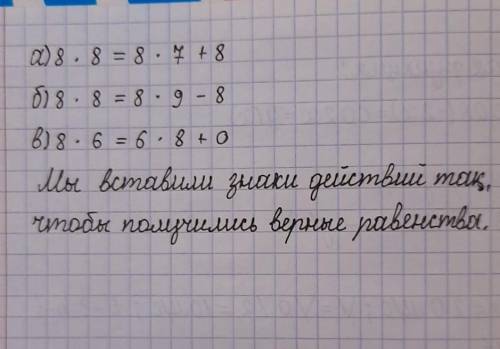 а) 8 · 8 = 8 · 7 + 8
б) 8 · 8 = 8 · 9 - 8
в) 8 · 6 = 6 · 8 + 0
Мы вставили знаки действий так,
чтобы получились верные равенства.